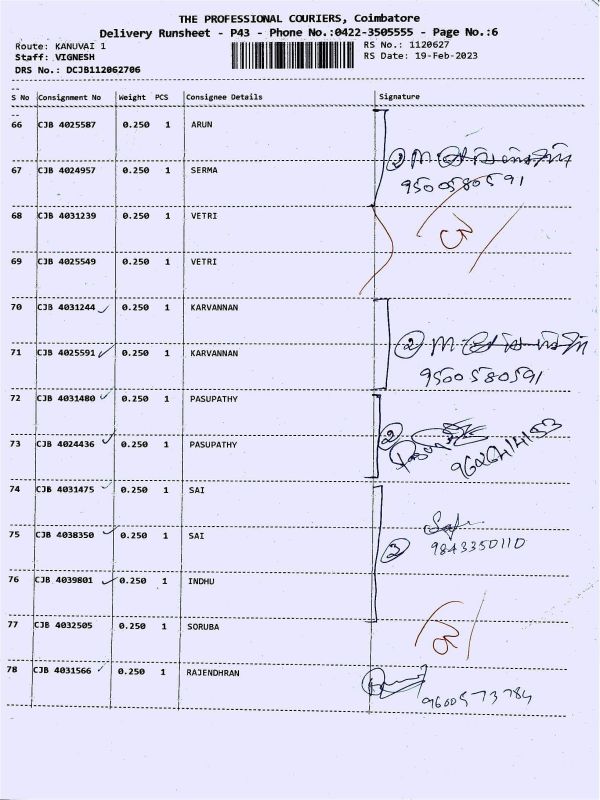 THE PROFESSIONAL COURIERS, Coimbatore
Delivery Runsheet - P43 - Phone No.:0422-3505555 - Page No.:6
Route: KANUVAI 1
RS No.: 1120627
Staff: VIGNESH
RS Date: 19-Feb-2023
DRS No.: DCJB112062706
S No Consignment No Weight PCS Consignee Details Signature
66 CJB 4025587 0.250 1 ARUN
67 CJB 4024957 0.250 1 SERMA
2
9500580591
68 CJB 4031239 0.250 1 VETRI
69 CJB 4025549 0.250 1 VETRI
70 CJB 4031244 0.250 1 KARVANNAN
71 CJB 4025591 0.250 1 KARVANNAN
2
9500580591
72 CJB 4031480 0.250 1 PASUPATHY
73 CJB 4024436 0.250 1 PASUPATHY
2
74 CJB 4031475 0.250 1 SAI
75 CJB 4038350 0.250 1 SAI
9843350110
76 CJB 4039801 0.250 1 INDHU
77 CJB 4032505 0.250 1 SORUBA
78 CJB 4031566 0.250 1 RAJENDHRAN
9600573784